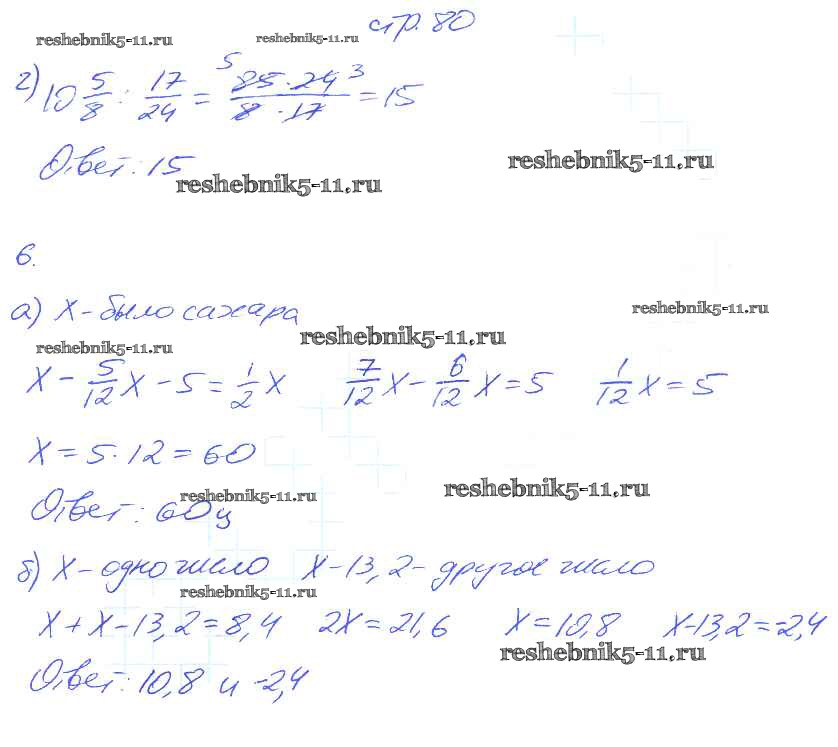 стр. 80
reshebnik5-11.ru reshebnik5-11.ru
г) 10 5/8 : 17/24 = 85 · 24 / 8 · 17 = 15
5 3
Ответ: 15
reshebnik5-11.ru reshebnik5-11.ru
6.
а) X - было сахара
reshebnik5-11.ru reshebnik5-11.ru
reshebnik5-11.ru
X - 5/12 X - 5 = 1/2 X 7/12 X - 6/12 X = 5 1/12 X = 5
X = 5 · 12 = 60
reshebnik5-11.ru reshebnik5-11.ru
Ответ: 60 ц
б) X - одно число X - 13,2 - другое число
reshebnik5-11.ru
X + X - 13,2 = 8,4 2X = 21,6 X = 10,8 X - 13,2 = -2,4
reshebnik5-11.ru
Ответ: 10,8 и -2,4